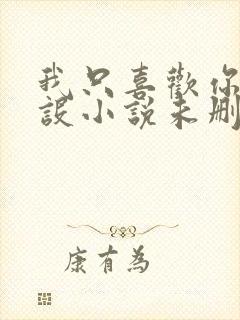 我只喜歡你
設小說未刪
康有為